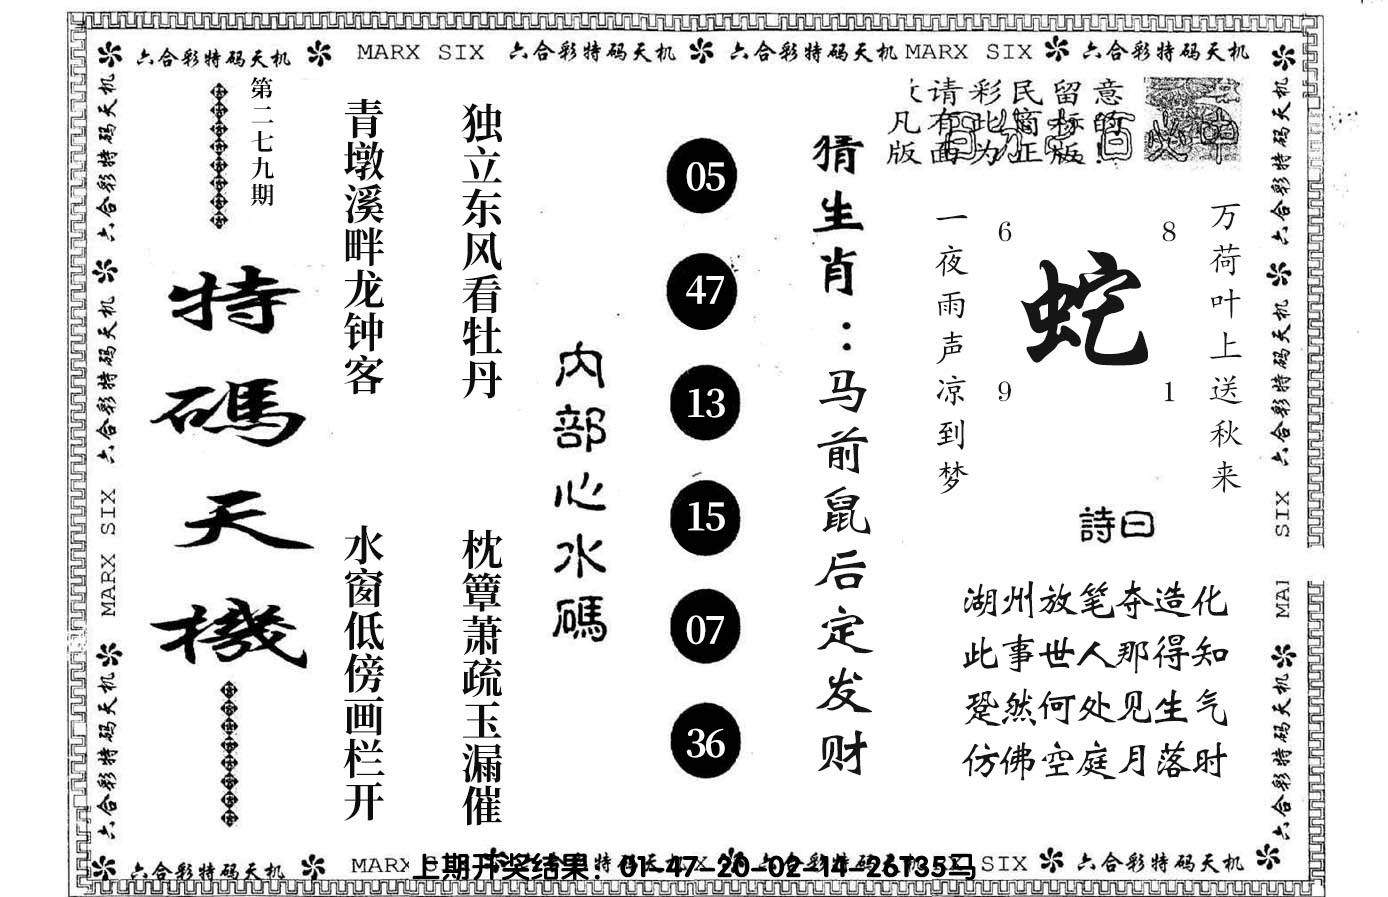 六合彩特码天机 MARX SIX 六合彩特码天机 六合彩特码天机 MARX SIX 六合彩特码天机
六合彩特码天机
六合彩特码天机
MARX SIX
六合彩特码天机
第二七九期
特碼天機
青墩溪畔龙钟客
水窗低傍画栏开
独立东风看牡丹
枕簟萧疏玉漏催
内部心水碼
05
47
13
15
07
36
猜生肖：马前鼠后定发财
请彩民留意
凡有此窗标的
版面为正版!
一夜雨声凉到梦
6
8
蛇
9
1
万荷叶上送秋来
詩曰
湖州放笔夺造化
此事世人那得知
跫然何处见生气
仿佛空庭月落时
六合彩特码天机
六合彩特码天机
SIX
MA
六合彩特码天机
六合彩特码天机 MARX SIX 六合彩特码天机
上期开奖结果：01-47-20-02-14-26T35马